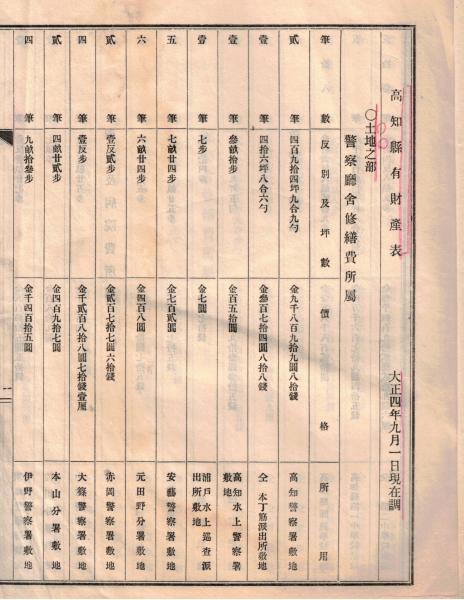 高知縣有財產表 大正四年九月一日現在調
〇土地之部
警察廳舍修繕費所屬
筆數 反別及坪數 價格 所用
貳筆 四百九拾四坪九合九勺 金九千八百九拾九圓八拾錢 高知警察署敷地
壹筆 四拾六坪八合六勺 金參百七拾四圓八拾八錢 仝 本丁筋派出所敷地
壹筆 參畝拾步 金百五拾圓 高知水上警察署敷地
壹筆 七步 金七圓 浦戶水上巡查派出所敷地
五筆 七畝廿四步 金七百貳圓 安藝警察署敷地
六筆 六畝廿四步 金四百八圓 元田野分署敷地
貳筆 壹反貳步 金貳百七拾七圓六拾錢 赤岡警察署敷地
四筆 壹反步 金千貳百八拾八圓七拾錢壹厘 大篠警察署敷地
貳筆 四畝廿貳步 金四百九拾七圓 本山分署敷地
四筆 九畝拾參步 金千四百拾五圓 伊野警察署敷地
一